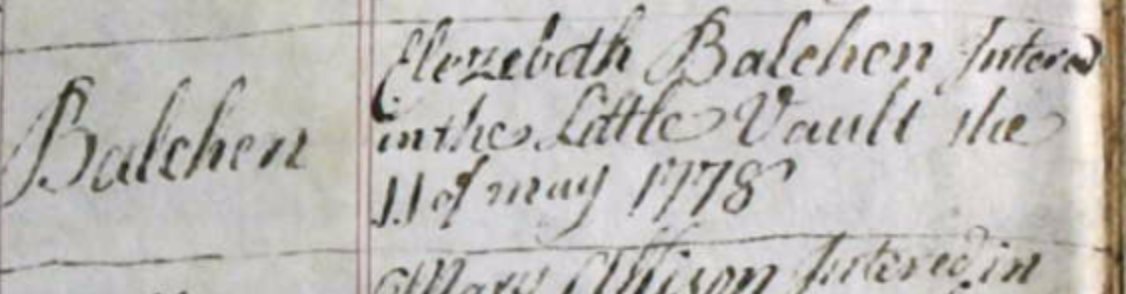 Balchen
Elezebeth Balchen Intered
in the Little Vault the
11 of may 1778
Mary Allison Intered in